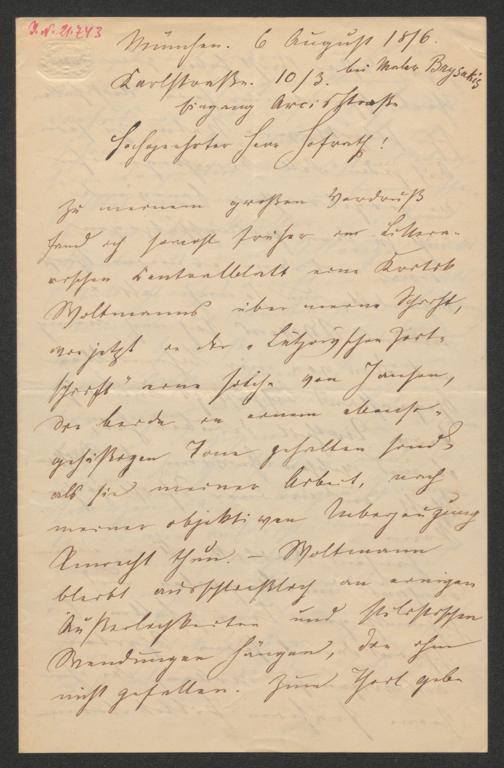 J.N. 21.743
München. 6 August 1876.
Karlstraße. 10/3. bei Maler Brysakis
Eingang Arcisstraße
Hochgeehrter Herr Hofrath!
Zu meinem großen Verdruß
fand ich sowohl früher im Littera-
rischen Centralblatt eine Kritik
Woltmanns über meine Schrift,
wie jetzt in der „Lützow'schen Zeit-
schrift" eine solche von Jansen,
die beide in einem ebenso
gehäßigen Tone gehalten sind,
als sie meiner Arbeit, nach
meiner objektiven Ueberzeugung
Unrecht thun. – Woltmann
bleibt ausschließlich an einigen
Äußerlichkeiten und stilistischen
Wendungen hängen, die ihm
nicht gefallen. Zum Theil gebe